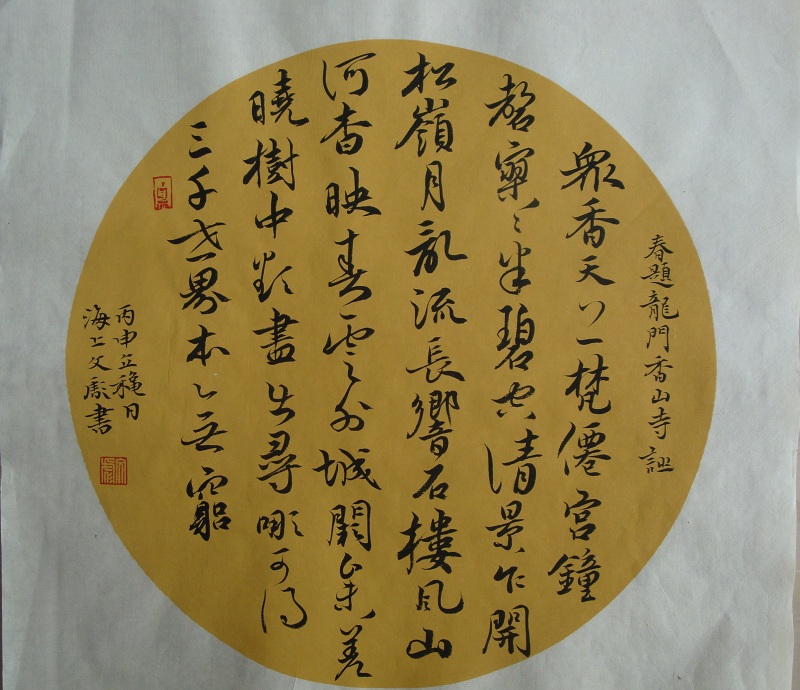 春題龍門香山寺
眾香天上梵僊宮鐘
磬寥々半碧空清景乍開
松嶺月亂流長響石樓風山
河杳映春雲外城闕參差
曉樹中欲盡出尋哪可得
三千世界本無窮
丙申立穐月
海上文彪書